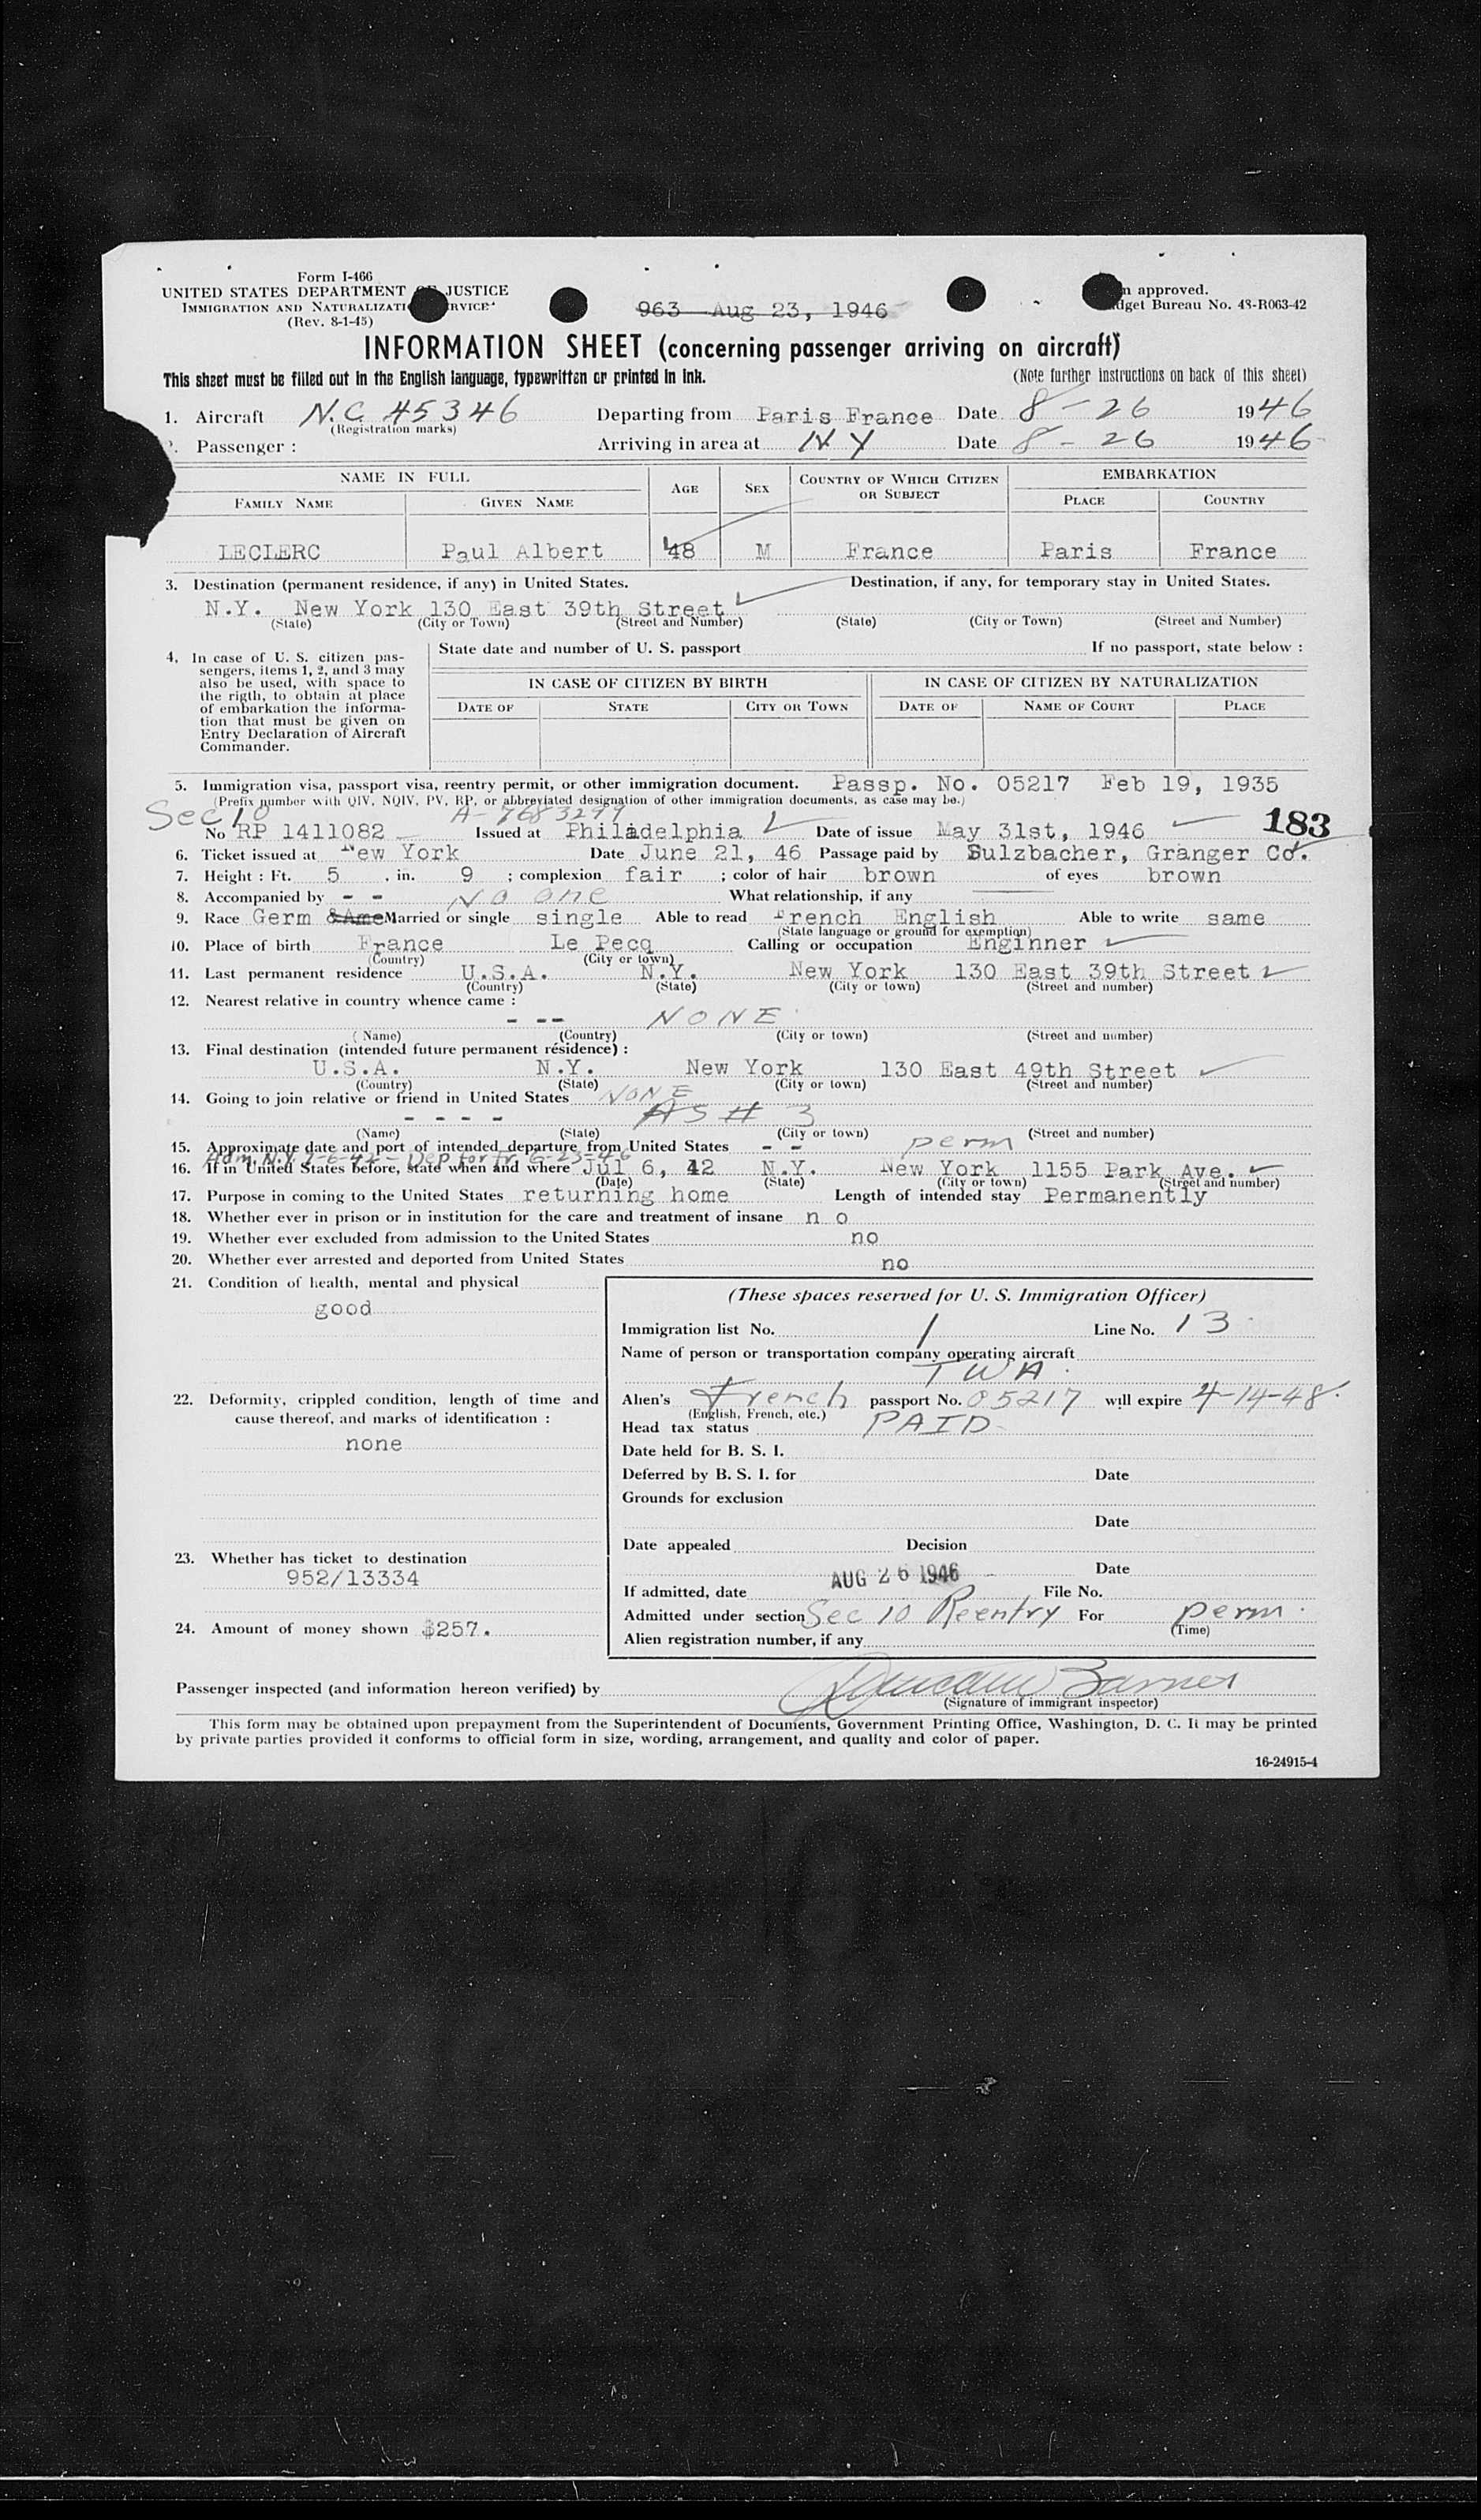 Form I-466
UNITED STATES DEPARTMENT OF JUSTICE
IMMIGRATION AND NATURALIZATION SERVICE
(Rev. 8-1-45)
963 Aug 23, 1946
approved.
Budget Bureau No. 43-R063-42
INFORMATION SHEET (concerning passenger arriving on aircraft)
This sheet must be filled out in the English language, typewritten or printed in ink.
(Note further instructions on back of this sheet)
1. Aircraft N.C 45346 Departing from Paris France Date 8-26 1946
(Registration marks)
Passenger : Arriving in area at N Y Date 8-26 1946
NAME IN FULL AGE SEX COUNTRY OF WHICH CITIZEN OR SUBJECT EMBARKATION
FAMILY NAME GIVEN NAME PLACE COUNTRY
LECLERC Paul Albert 48 M France Paris France
3. Destination (permanent residence, if any) in United States. Destination, if any, for temporary stay in United States.
N.Y. New York 130 East 39th Street
(State) (City or Town) (Street and Number) (State) (City or Town) (Street and Number)
4. In case of U. S. citizen pas-
sengers, items 1, 2, and 3 may
also be used, with space to
the rigth, to obtain at place
of embarkation the informa-
tion that must be given on
Entry Declaration of Aircraft
Commander.
State date and number of U. S. passport If no passport, state below :
IN CASE OF CITIZEN BY BIRTH IN CASE OF CITIZEN BY NATURALIZATION
DATE OF STATE CITY OR TOWN DATE OF NAME OF COURT PLACE
5. Immigration visa, passport visa, reentry permit, or other immigration document. Passp. No. 05217 Feb 19, 1935
(Prefix number with QIV, NQIV, PV, RP, or abbreviated designation of other immigration documents, as case may be.)
Sec 10 A-7683299 183
No RP 1411082 Issued at Philadelphia Date of issue May 31st, 1946
6. Ticket issued at New York Date June 21, 46 Passage paid by Sulzbacher, Granger Co.
7. Height : Ft. 5 , in. 9 ; complexion fair ; color of hair brown of eyes brown
8. Accompanied by - - No one What relationship, if any
9. Race Germ &Ame Married or single single Able to read French English Able to write same
(State language or ground for exemption)
10. Place of birth France Le Pecq Calling or occupation Enginner
(Country) (City or town)
11. Last permanent residence U.S.A. N.Y. New York 130 East 39th Street
(Country) (State) (City or town) (Street and number)
12. Nearest relative in country whence came :
- -- NONE
(Name) (Country) (City or town) (Street and number)
13. Final destination (intended future permanent résidence) :
U.S.A. N.Y. New York 130 East 49th Street
(Country) (State) (City or town) (Street and number)
14. Going to join relative or friend in United States NONE
- - - - AS # 3
(Name) (State) (City or town) (Street and number)
15. Approximate date and port of intended departure from United States - - perm
Adm. N.Y. 7-6-42 - Dep for Fr. 6-23-46
16. If in United States before, state when and where Jul 6, 42 N.Y. New York 1155 Park Ave.
(Date) (State) (City or town) (Street and number)
17. Purpose in coming to the United States returning home Length of intended stay Permanently
18. Whether ever in prison or in institution for the care and treatment of insane n o
19. Whether ever excluded from admission to the United States no
20. Whether ever arrested and deported from United States no
21. Condition of health, mental and physical
good
22. Deformity, crippled condition, length of time and
cause thereof, and marks of identification :
none
23. Whether has ticket to destination
952/13334
24. Amount of money shown $257.
(These spaces reserved for U. S. Immigration Officer)
Immigration list No. 1 Line No. 13
Name of person or transportation company operating aircraft
TWA
Alien's French passport No. 05217 will expire 4-14-48
(English, French, etc.)
Head tax status PAID
Date held for B. S. I.
Deferred by B. S. I. for Date
Grounds for exclusion
Date
Date appealed Decision
Date
If admitted, date AUG 26 1946 File No.
Admitted under section Sec 10 Reentry For perm
(Time)
Alien registration number, if any
Passenger inspected (and information hereon verified) by Duncan Barnes
(Signature of immigrant inspector)
This form may be obtained upon prepayment from the Superintendent of Documents, Government Printing Office, Washington, D. C. It may be printed
by private parties provided it conforms to official form in size, wording, arrangement, and quality and color of paper.
16-24915-4